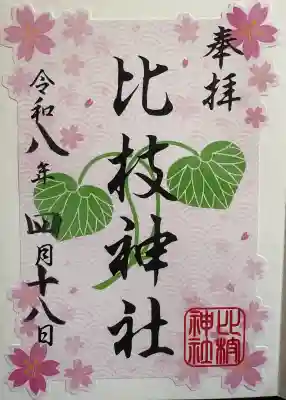 奉拝
比枝神社
令和八年四月十八日
比枝
神社